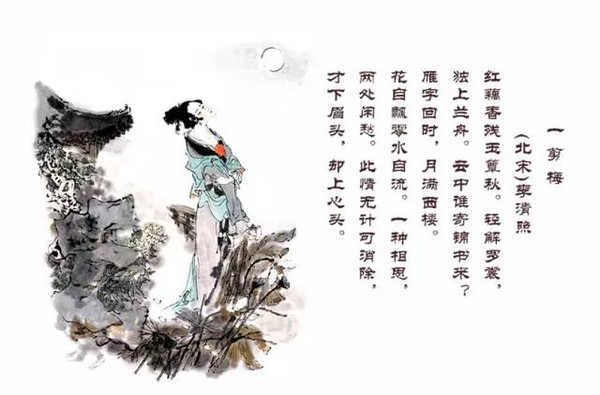 一剪梅
(北宋)李清照
红藕香残玉簟秋。轻解罗裳,
独上兰舟。云中谁寄锦书来?
雁字回时,月满西楼。
花自飘零水自流。一种相思,
两处闲愁。此情无计可消除,
才下眉头,却上心头。